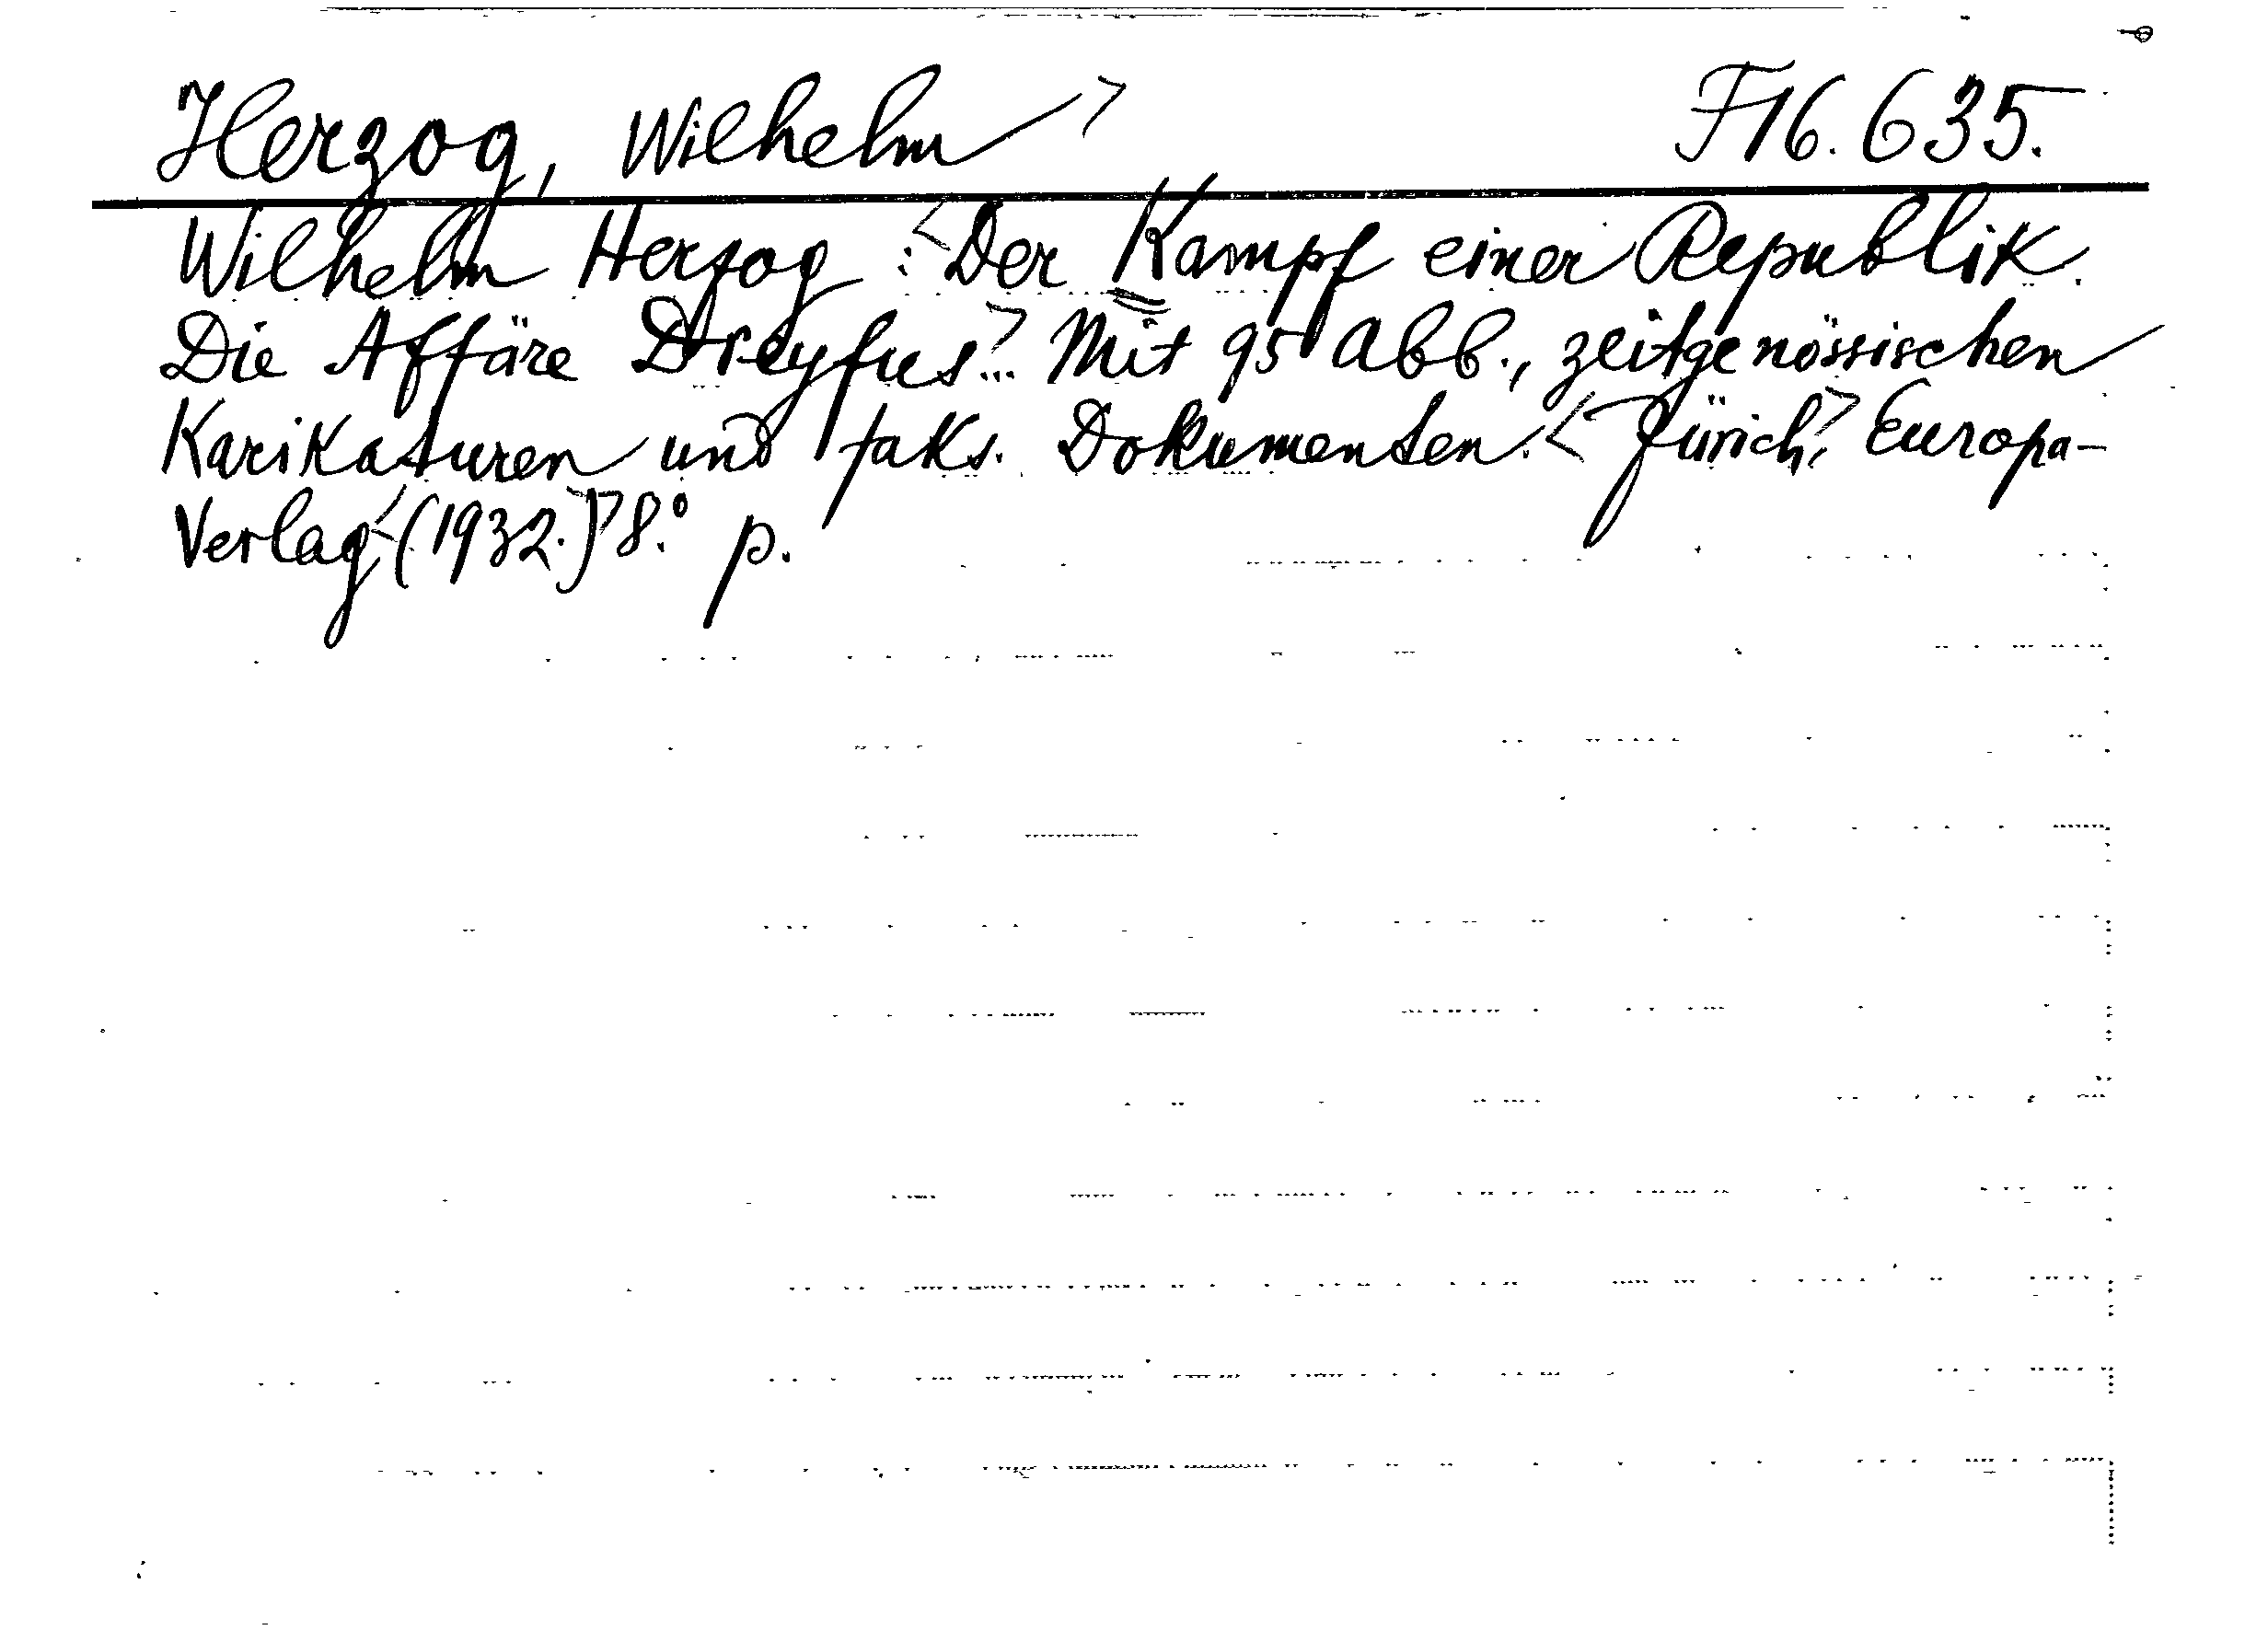 Herzog, Wilhelm> F16.635.
Wilhelm Herzog: <Der Kampf einer Republik.
Die Affäre Dreyfus.>.. Mit 95 Abb., zeitgenössischen
Karikaturen und faks. Dokumenten. <Zürich,> Europa-
Verlag <(1932.)> 8.° p.